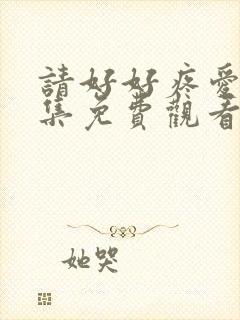 請好好疼愛
集免費觀看
她哭